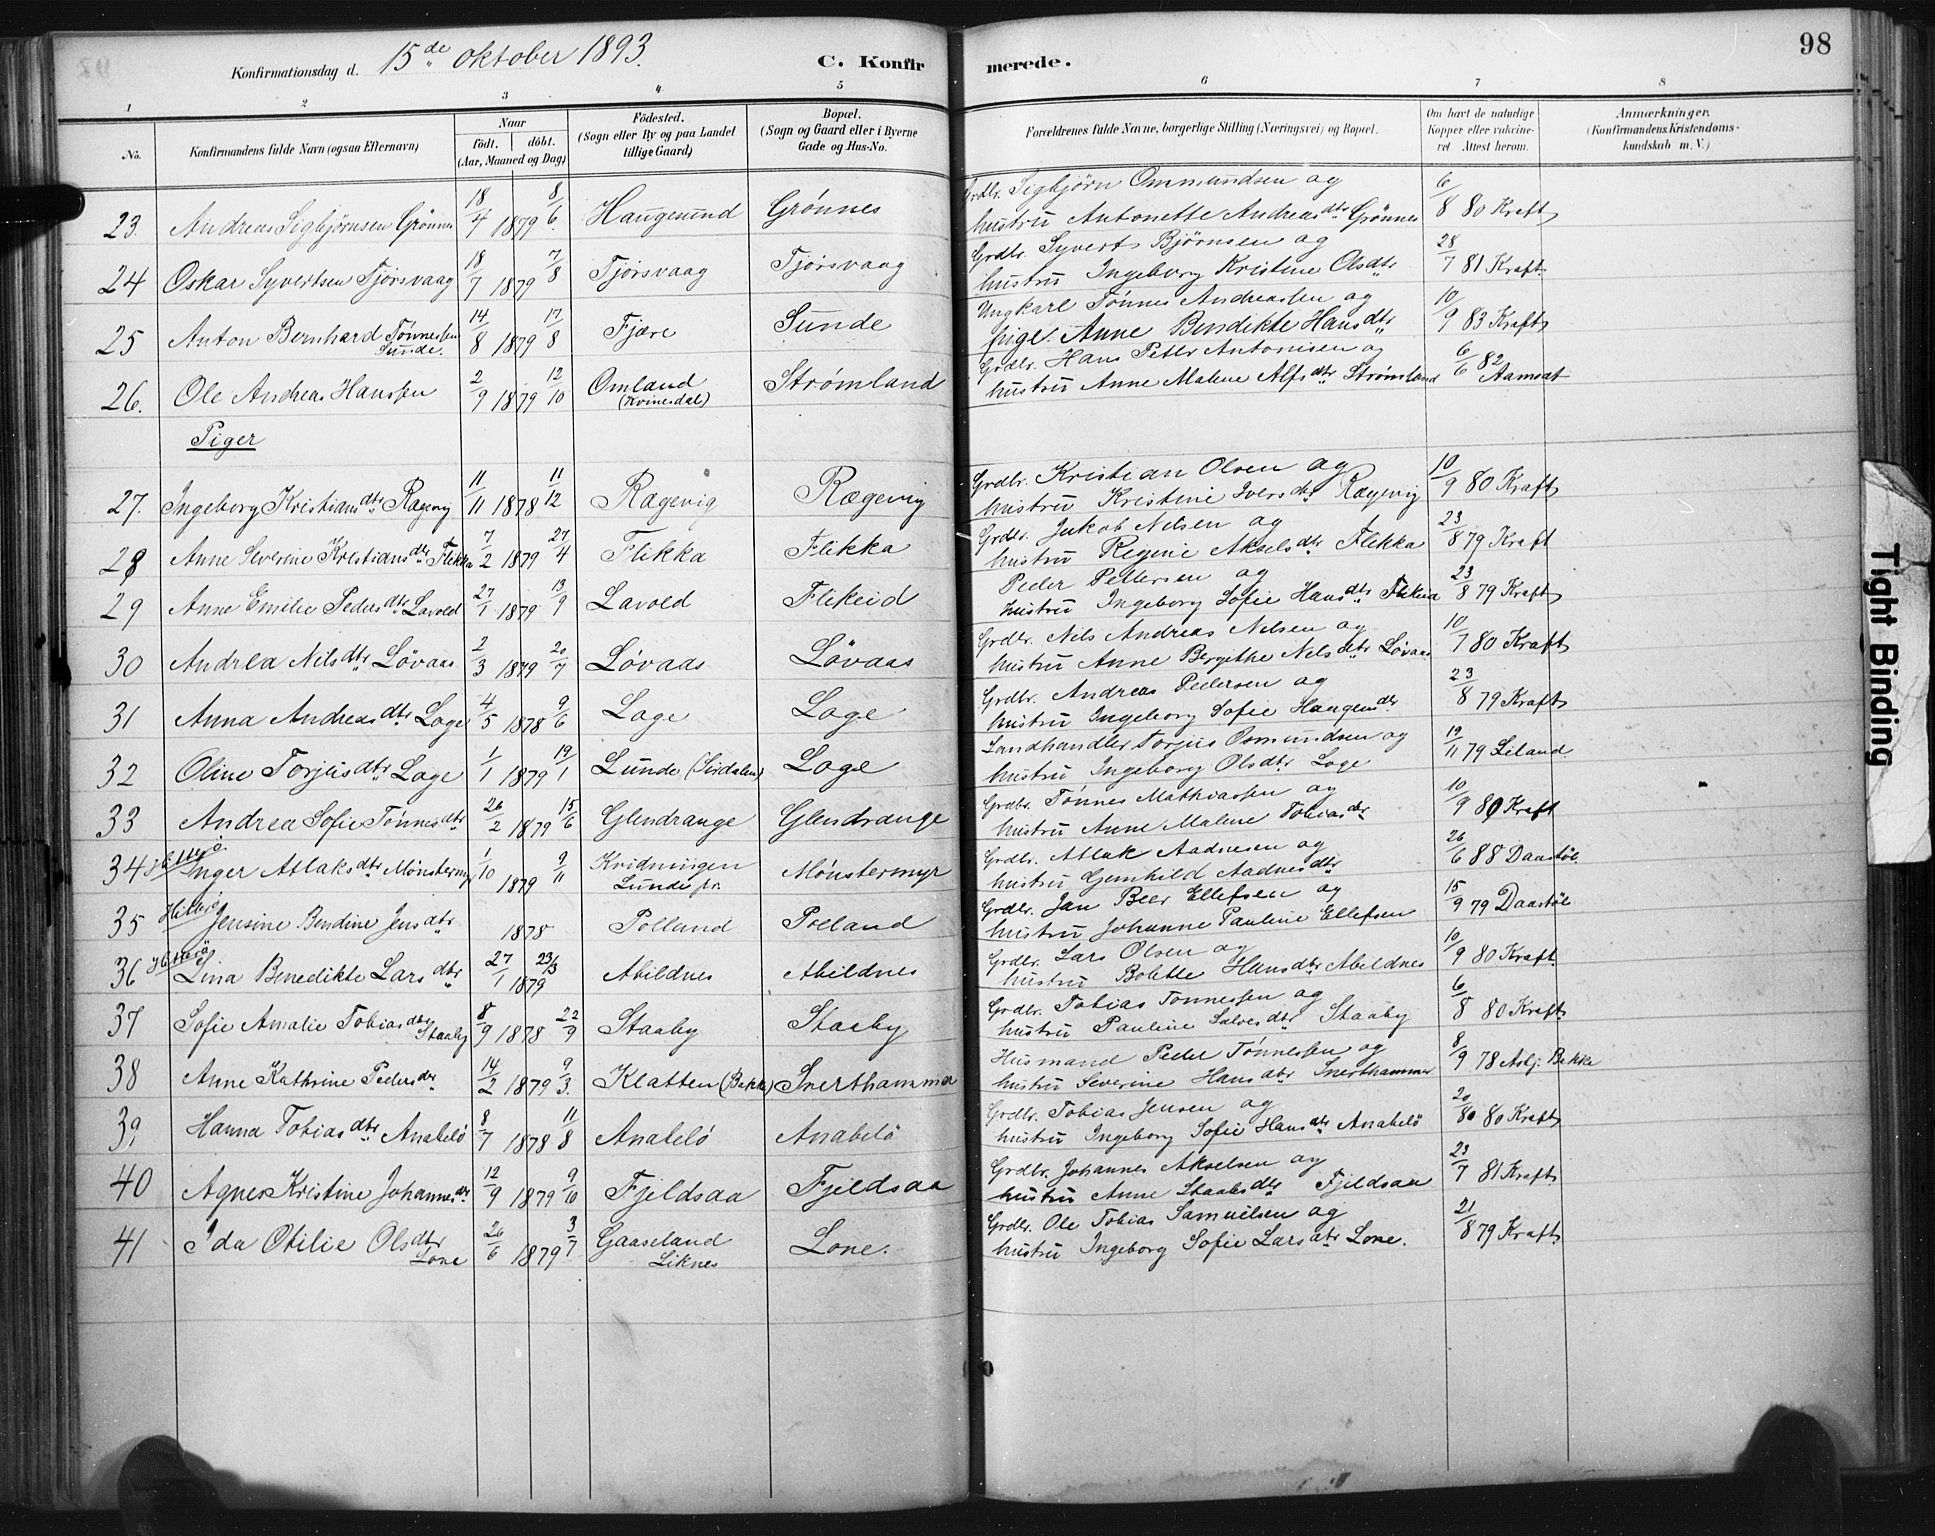 98
Konfirmationsdag d. 15de oktober 1893.
C. Konfirmerede.
1 2 3 4 5 6 7 8
No. Konfirmandens fulde Navn (ogsaa Efternavn) Naar født. døbt. (Aar, Maaned og Dag) Fødested. (Sogn eller By og paa Landet tillige Gaard) Bopæl. (Sogn og Gaard eller i Byerne Gade og Hus-No. Forældrenes fulde Navne, borgerlige Stilling (Næringsvei) og Bopæl. Om havt de naturlige Kopper eller vakcineret Attest herom. Anmærkninger. (Konfirmandens Kristendomskundskab m. V.)
23. Andreas Sigbjørnsen Grønnes 18/4 1879 8/6 Haugesund Grønnes Grdbr. Sigbjørn Ommundsen og hustru Antonette Andreasdtr Grønnes 6/8 80 Kraft
24 Oskar Syvertsen Tjørsvaag 18/7 1879 7/8 Tjørsvaag Tjørsvaag Grdbr. Syvert Bjørnsen og hustru Ingeborg Kristine Olsdtr 28/7 81 Kraft
25 Anton Bernhard Tønnessen Sunde. 14/8 1879 17/8 Fjære Sunde Ungkarl Tønnes Andreassen og pige. Anne Bendikte Hansdtr 10/9 83 Kraft
26. Ole Andreas Hanssen 2/9 1879 12/10 Omland (Kvinesdal) Strømland Grdbr. Hans Peter Antonisen og hustru Anne Malene Alfsdtr Strømland 6/6 82 Aamot
Piger
27. Ingeborg Kristiansdtr Rægevig 11/11 1878 11/12 Rægevig Rægevig Grdbr. Kristian Olsen og hustru Kristine Iversdtr Rægevig 10/9 80 Kraft
28 Anne Severine Kristiansdtr Flikka 7/2 1879 27/4 Flikka Flikka Grdbr. Jakob Nilsen og hustru Regine Akselsdtr Flikka 23/8 79 Kraft
29 Anne Emilie Pedersdtr Lavold 27/1 1879 13/9 Lavold Flikeid Peder Pettersen og hustru Ingeborg Sofie Hansdtr Flikeid 23/8 79 Kraft
30 Andrea Nilsdtr Løvaas 2/3 1879 20/7 Løvaas Løvaas Grdbr. Nils Andreas Nilsen og hustru Anne Bergithe Nilsdtr Løvaas 10/7 80 Kraft
31 Anna Andreasdtr Loge 4/5 1878 9/6 Loge Loge Grdbr. Andreas Pedersen og hustru Ingeborg Sofie Haagensdtr 23/8 79 Kraft
32 Oline Torjusdtr Loge 1/1 1879 19/1 Lunde (Sirdalen) Loge Landhandler Torjus Osmundsen og hustru Ingeborg Olsdtr Loge 19/11 79 Liland
33 Andrea Sofie Tønnesdtr 26/2 1879 15/6 Glendrange Glendrange Grdbr. Tønnes Mathiassen og hustru Anne Malene Tobiasdtr 10/9 80 Kraft
34 Hitterø Inger Atlaksdtr Mønstermyr 1/10 1879 9/11 Kvidningen Lunde pr. Mønstermyr Grdbr. Atlak Aadnesen og hustru Gunhild Aadnesdtr 26/6 88 Daastøl
35 Hitterø Jensine Bendine Jensdtr 1878 Polland Polland Grdbr. Jan Beer Ellefsen og hustru Johanne Pauline Ellefsen 15/9 79 Daastøl
36 Hitterø Lina Benedikte Larsdtr 27/1 1879 23/3 Abildnes Abildnes Grdbr. Lars Olsen og hustru Bolette Hansdtr Abildnes 10/9 80 Kraft
37 Sofie Amalie Tobiasdtr Staaby 8/9 1878 22/9 Staaby Staaby Grdbr. Tobias Tønnessen og hustru Pauline Salvesdtr Staaby 6/8 80 Kraft
38 Anne Kathrine Pedersdtr 14/2 1879 9/3. Klatten (Bakke) Snerthammer Husmand Peder Tønnessen og hustru Severine Hansdtr Snerthammer 8/9 78 Asbj. Bakke
39 Hanna Tobiasdtr Anabelø 8/7 1878 11/8 Anabelø Anabelø Grdbr. Tobias Jensen og hustru Ingeborg Sofie Hansdtr Anabelø 20/80 80 Kraft
40 Agnes Kristine Johannesdtr 12/9 1879 9/10 Fjeldsaa Fjeldsaa Grdbr. Johannes Akselsen og hustru Anne Staalesdtr Fjeldsaa 23/7 81 Kraft
41 Ida Otilie Olsdtr Lone 26/6 1879 3/7 Gaaseland Liknes Lone. Grdbr. Ole Tobias Samuelsen og hustru Ingeborg Sofie Larsdtr Lone. 21/8 79 Kraft
Tight Binding